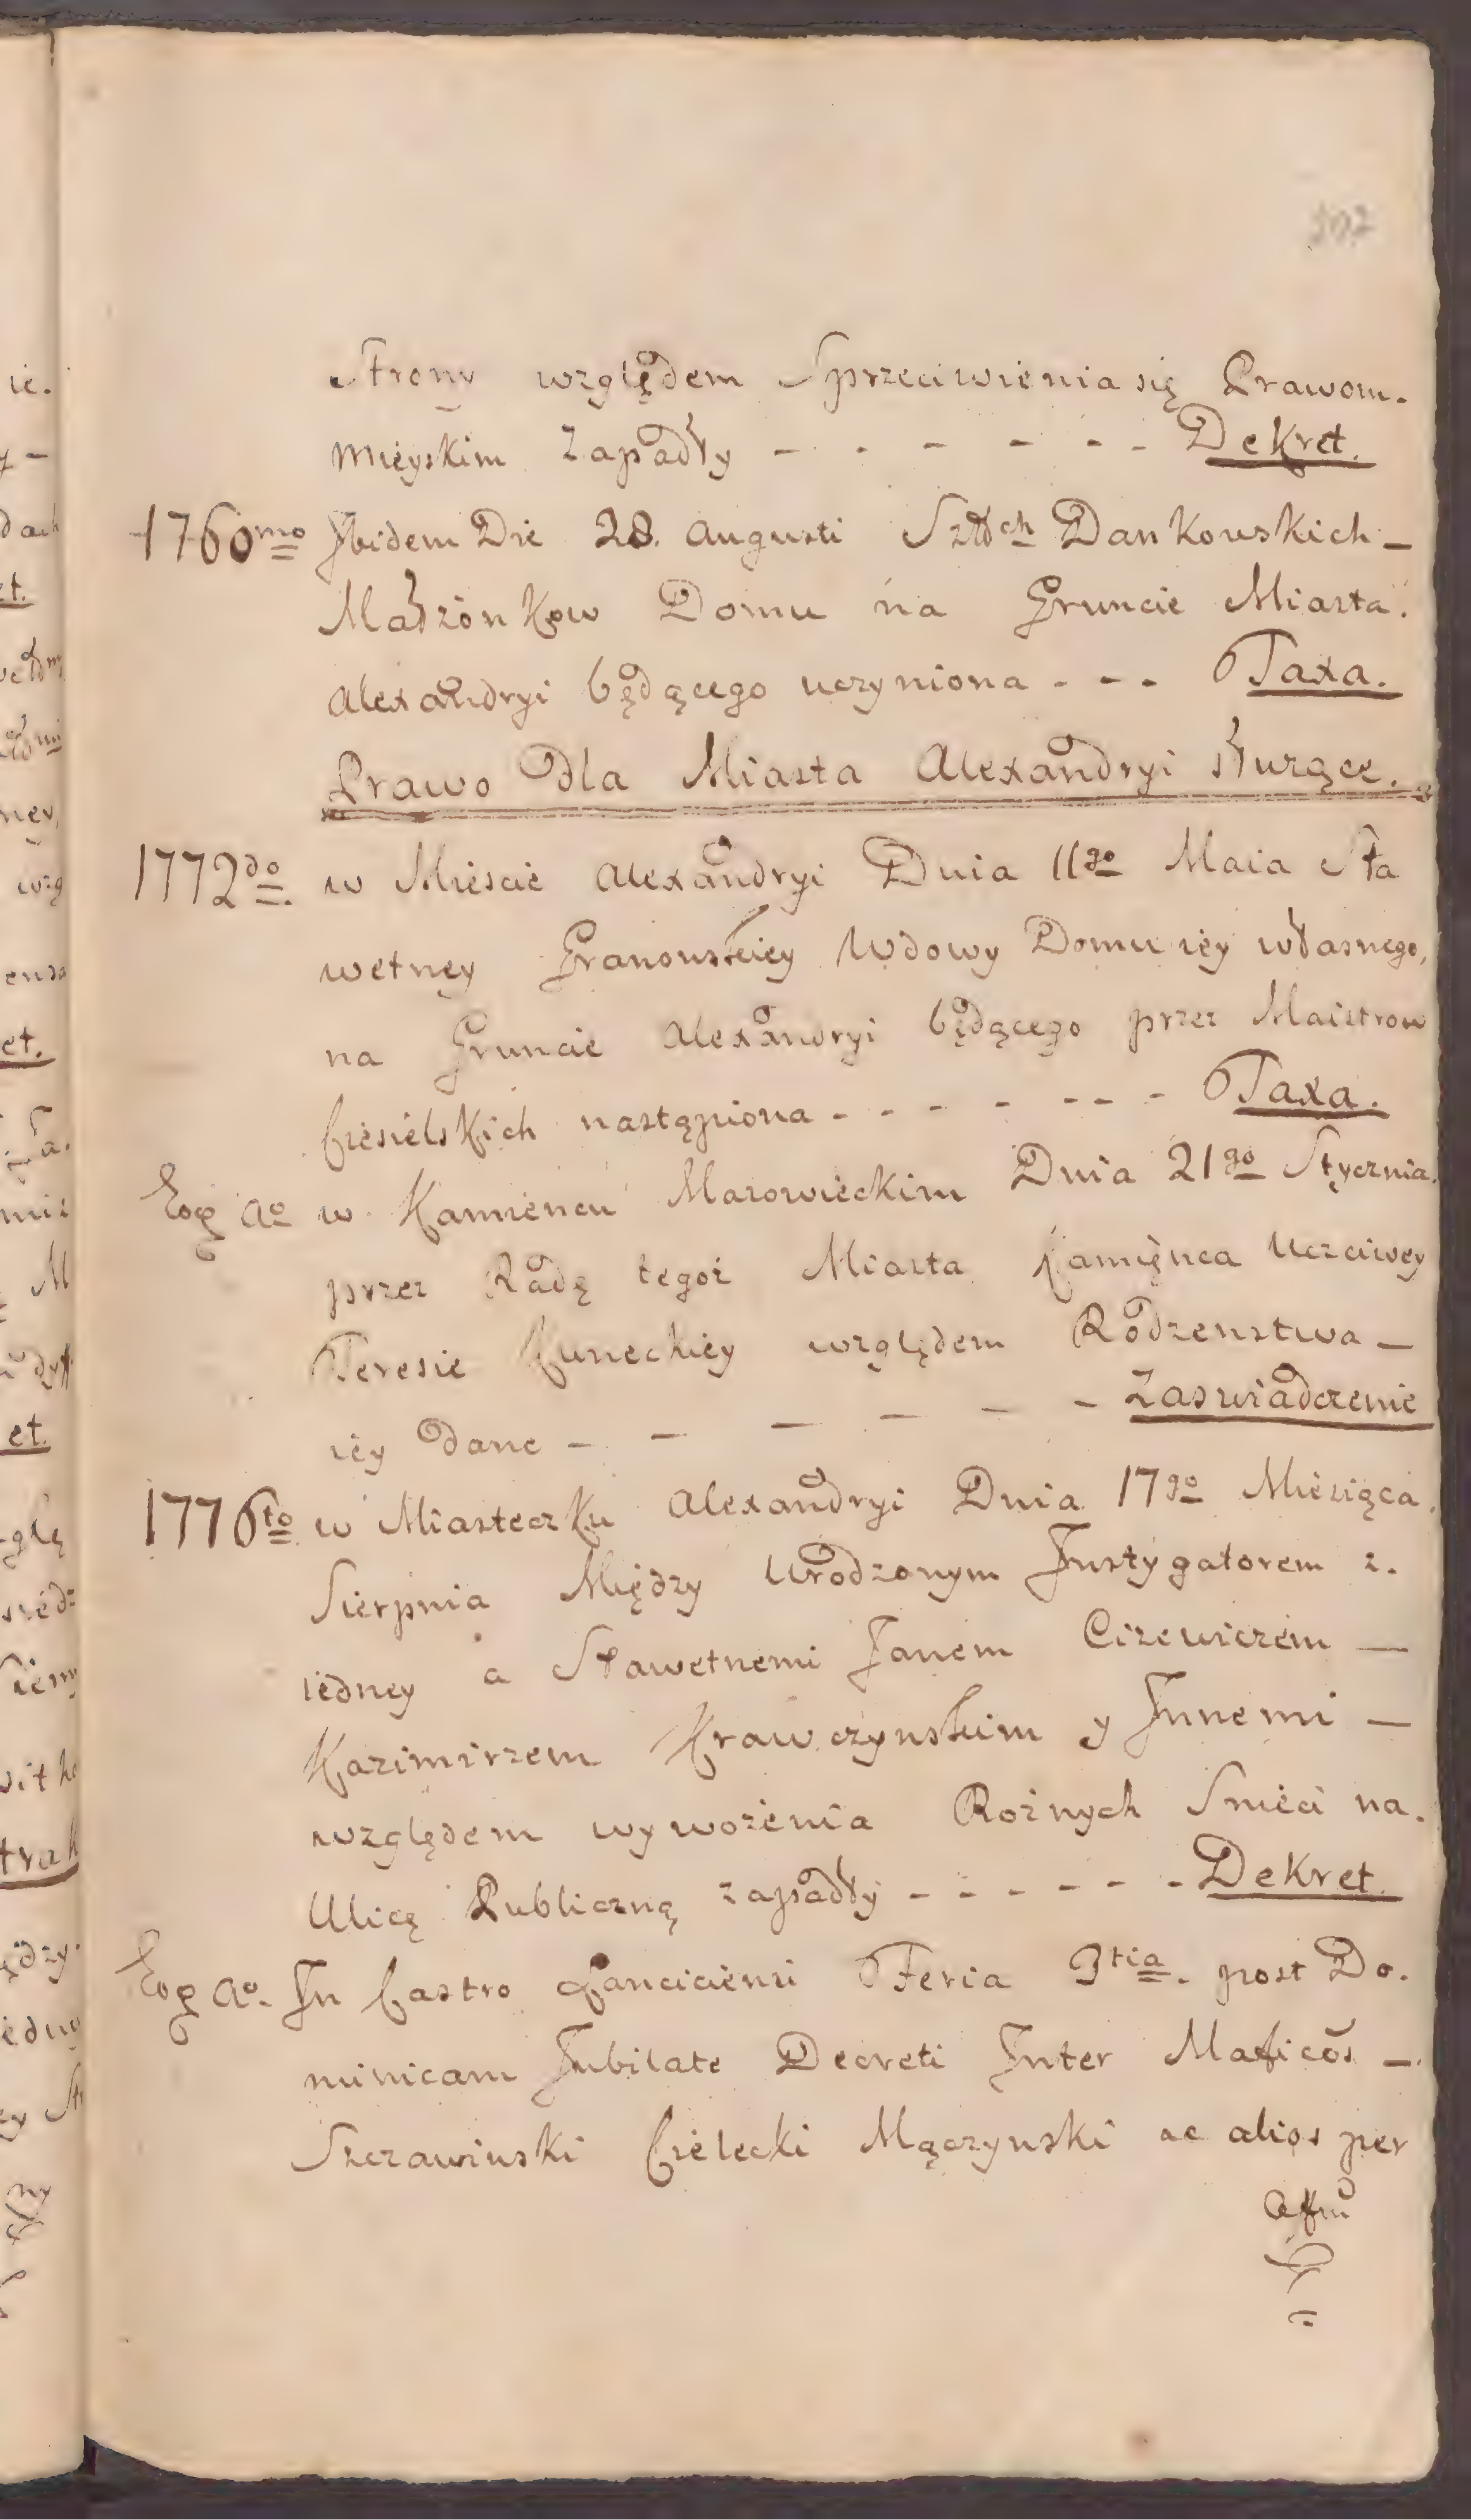 Strony względem Sprzeciwienia się Prawom.
Mieyskim zapadły - - - - - - Dekret.
1760mo Ibidem Die 28. Augusti Szltch Dankowskich -
Małżonkow Domu na Gruncie Miasta.
Alexandryi będącego uczyniona - - - Taxa.
Prawo dla Miasta Alexandryi służące.
1772do. w Mieście Alexandryi Dnia 11go Maia Sła
wetney Granowskiey Wdowy Domu iey własnego,
na Gruncie Alexandryi będącego przez Maistrow
Ciesielskich nastąpiona - - - - - - - Taxa.
Eog Ao w Kamiencu Mazowieckim Dnia 21go Stycznia.
przez Radę tegoż Miasta Kamięnca Uczciwey
Teresie Kuneckiey względem Rodzenstwa -
iey dane - - - - - - Zaswiadczenie
1776to w Miasteczku Alexandryi Dnia 17go Miesiąca.
Sierpnia Między Urodzonym Instygatorem z.
iedney a Sławetnemi Janem Cizewiczem -
Kazimirzem Krawczynskim y Innemi -
względem wywożenia Rożnych Smieci na.
Ulicę Publiczną zapadły - - - - - - Dekret.
Eog Ao. In Castro Lanciciensi Feria 3tia. post Do.
minicam Jubilate Decreti Inter Mafīcos -
Szczawinski Cielecki Mączynski ac alios per